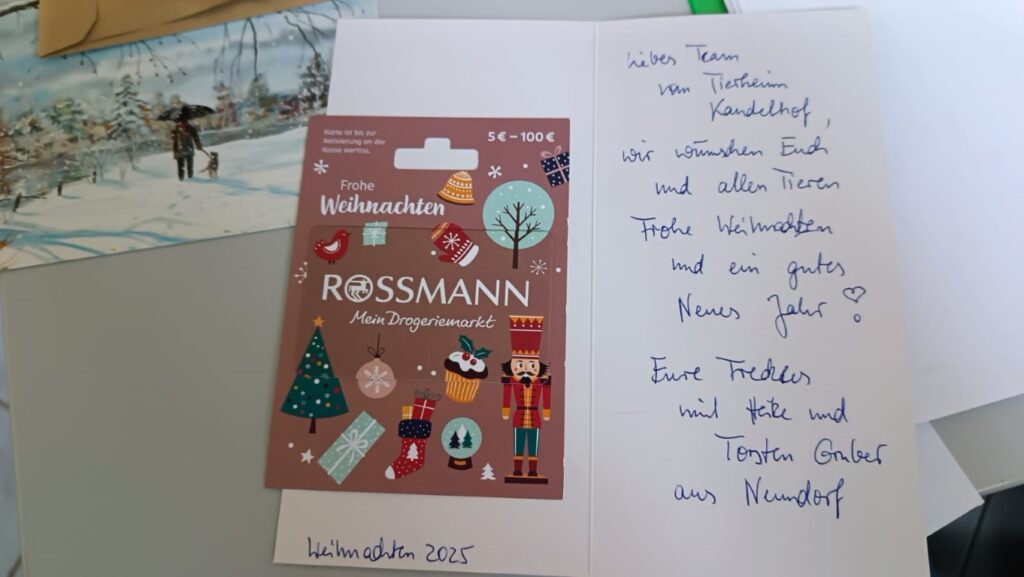 Karte ist bis zur
Aktivierung an der
Kasse wertlos.
5 € – 100 €
Frohe
Weihnachten
ROSSMANN
Mein Drogeriemarkt
Weihnachten 2025
Liebes Team
vom Tierheim
Kandelhof,
wir wünschen Euch
und allen Tieren
Frohe Weihnachten
und ein gutes
Neues Jahr!
Eure
mit Heike und
Torsten Gruber
aus Neundorf